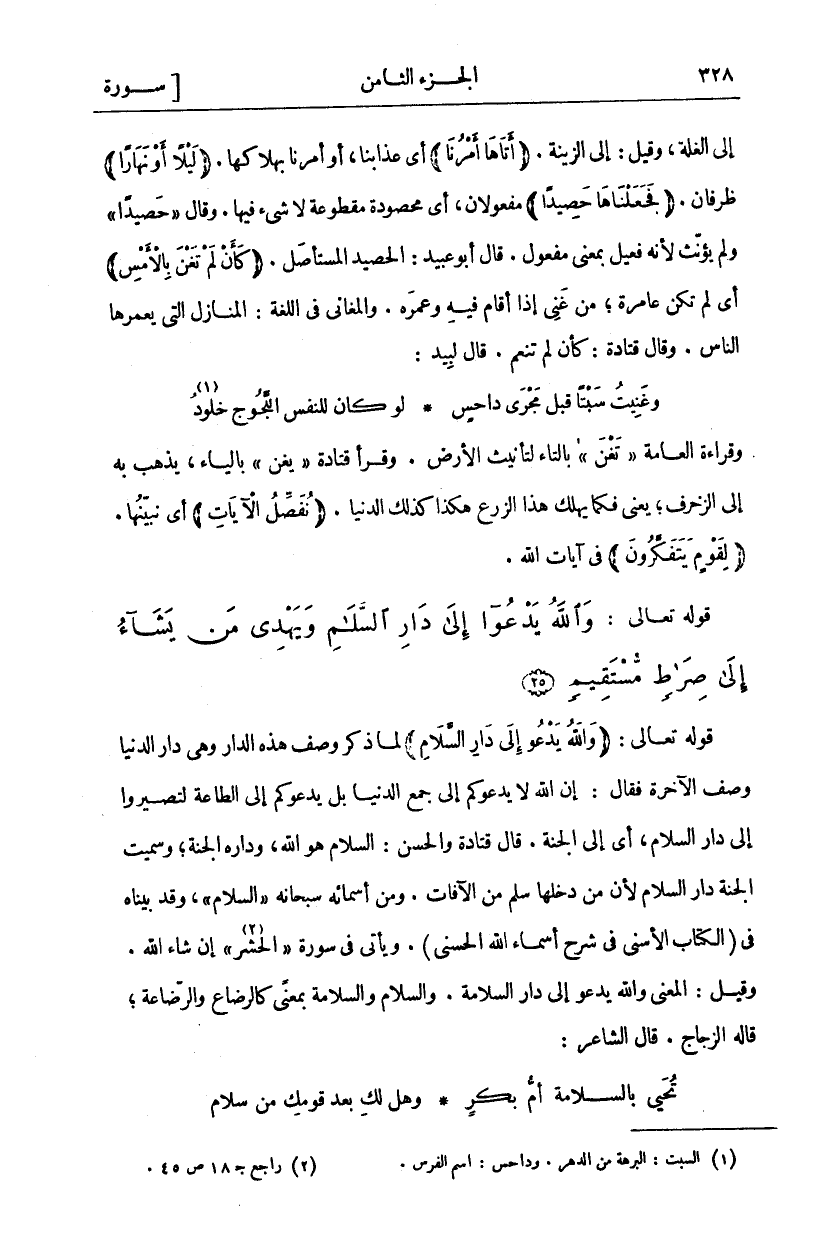 ٣٢٨ الجـزء الثامن [ ســورة
إلى الغلة ، وقيل : إلى الزينة . ﴿ أَتَاهَا أَمْرُنَا ﴾ أى عذابنا ، أو أمرنا بهلاكها . ﴿ لَيْلًا أَوْ نَهَارًا ﴾
ظرفان . ﴿ فَجَعَلْنَاهَا حَصِيدًا ﴾ مفعولان ، أى محصودة مقطوعة لا شىء فيها . وقال « حَصيدًا »
ولم يؤنّث لأنه فعيل بمعنى مفعول . قال أبو عبيد : الحصيد المستأصَل . ﴿ كَأَنْ لَمْ تَغْنَ بِالْأَمْسِ ﴾
أى لم تكن عامرة ؛ من غَنِى إذا أقام فيه وعمرَه . والمغانى فى اللغة : المنازل التى يعمرها
الناس . وقال قتادة : كأن لم تنعم . قال لبيد :
وغَنِيتُ سَبْتًا قبل مَجْرَى داحسٍ * لو كان للنفس اللَّجُوج خلودُ (١)
وقراءة العـامة « تَغْنَ » بالتاء لتأنيث الأرض . وقـرأ قتادة « يغن » باليـاء ، يذهب به
إلى الزخرف ؛ يعنى فكما يهلك هذا الزرع هكذا كذلك الدنيا . ﴿ نُفَصِّلُ الْآيَاتِ ﴾ أى نبيّنُها .
﴿ لِقَوْمٍ يَتَفَكَّرُونَ ﴾ فى آيات الله .
قوله تعـالى : وَٱللَّهُ يَدْعُوٓا۟ إِلَىٰ دَارِ ٱلسَّلَـٰمِ وَيَهْدِى مَن يَشَآءُ
إِلَىٰ صِرَٰطٍ مُّسْتَقِيمٍ ٢٥
قوله تعـالى : ﴿ وَاللَّهُ يَدْعُو إِلَى دَارِ السَّلَامِ ﴾ لما ذكر وصف هذه الدار وهى دار الدنيا
وصف الآخرة فقال : إن الله لا يدعوكم إلى جمع الدنيـا بل يدعوكم إلى الطاعة لتصـيروا
إلى دار السلام ، أى إلى الجنة . قال قتادة والحسن : السلام هو الله ، وداره الجنة ؛ وسميت
الجنة دار السلام لأن من دخلها سلم من الآفات . ومن أسمائه سبحانه « السلام » ، وقد بيناه
فى ( الكتاب الأسنى فى شرح أسمـاء الله الحسنى ) . ويأتى فى سورة « الحَشْر » (٢) إن شاء الله .
وقيـل : المعنى والله يدعو إلى دار السلامة . والسلام والسلامة بمعنًى كالرضاع والرَّضاعة ؛
قاله الزجاج . قال الشاعر :
تُحَيّى بالســلامة أمُّ بكـرٍ * وهل لكِ بعد قومكِ من سلام
(١) السبت : البرهة من الدهر . وداحس : اسم الفرس . (٢) راجع جـ ١٨ ص ٤٥ .